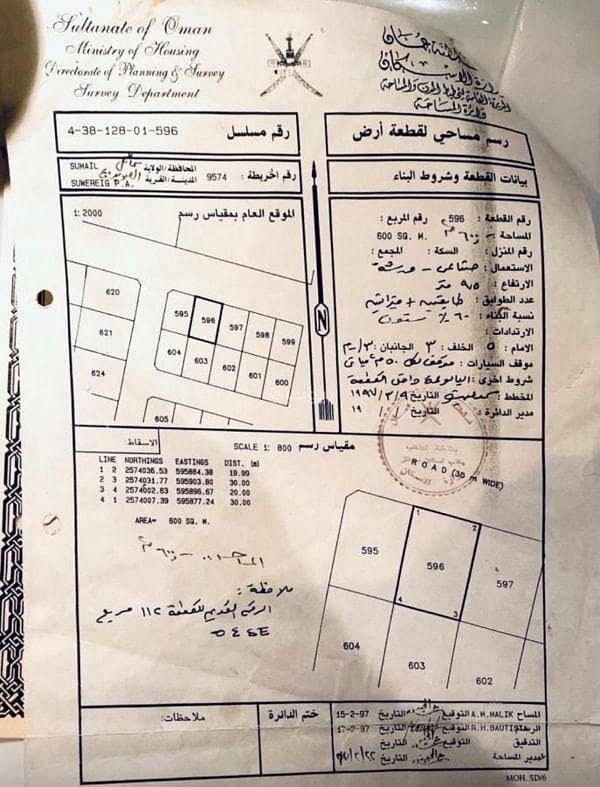 Sultanate of Oman
Ministry of Housing
Directorate of Planning & Survey
Survey Department
سلطنة عمان
وزارة الإسكان
دائرة المساحة
4-38-128-01-596
رقم مسلسل
رسم مساحي لقطعة أرض
SUMAIL
المحافظة/الولاية سمائل
SUWEREIG P.A.
المدينة/القرية
رقم الخريطة : 9574
بيانات القطعة وشروط البناء
1: 2000
الموقع العام بمقياس رسم
رقم القطعة : 596 رقم المربع :
المساحة
600 SQ. M.
رقم المنزل : السكة : المجمع :
الاستعمال : صناعي - ورشة
الارتفاع : ٩,٥ متر
عدد الطوابق : طابقين + ميزانين
نسبة البناء : ٦٠٪ ستون
الارتدادات :
الامام : ٥ الخلف : ٣ الجانبان : ٣/
موقف السيارات : موقف لكل ٥٠ م٢ مباني
شروط اخرى :
المخطط : التاريخ ١٩٩٧/٣/٩
مدير الدائرة : التاريخ / / ١٩
620
621
624
595
596
597
598
599
604
603
602
601
600
605
N
الاسقاط
SCALE 1: 800 مقياس رسم
LINE NORTHINGS EASTINGS DIST. (m)
1 2 2574036.53 595884.38 19.99
2 3 2574031.77 595903.80 30.00
3 4 2574002.63 595896.67 20.00
4 1 2574007.39 595877.24 30.00
AREA= 600 SQ. M.
ROAD (30 m WIDE)
1
2
595
596
597
4
3
604
603
602
ملاحظة :
الرقم القديم للقطعة ١١٢ مربع
ملاحظات:
ختم الدائرة
المساح A.M.MALIK التوقيع التاريخ 15-2-97
R.H.BAUTIS التوقيع التاريخ 17-2-97
التدقيق التوقيع التاريخ
مدير المساحة التاريخ
MOH. SD/6